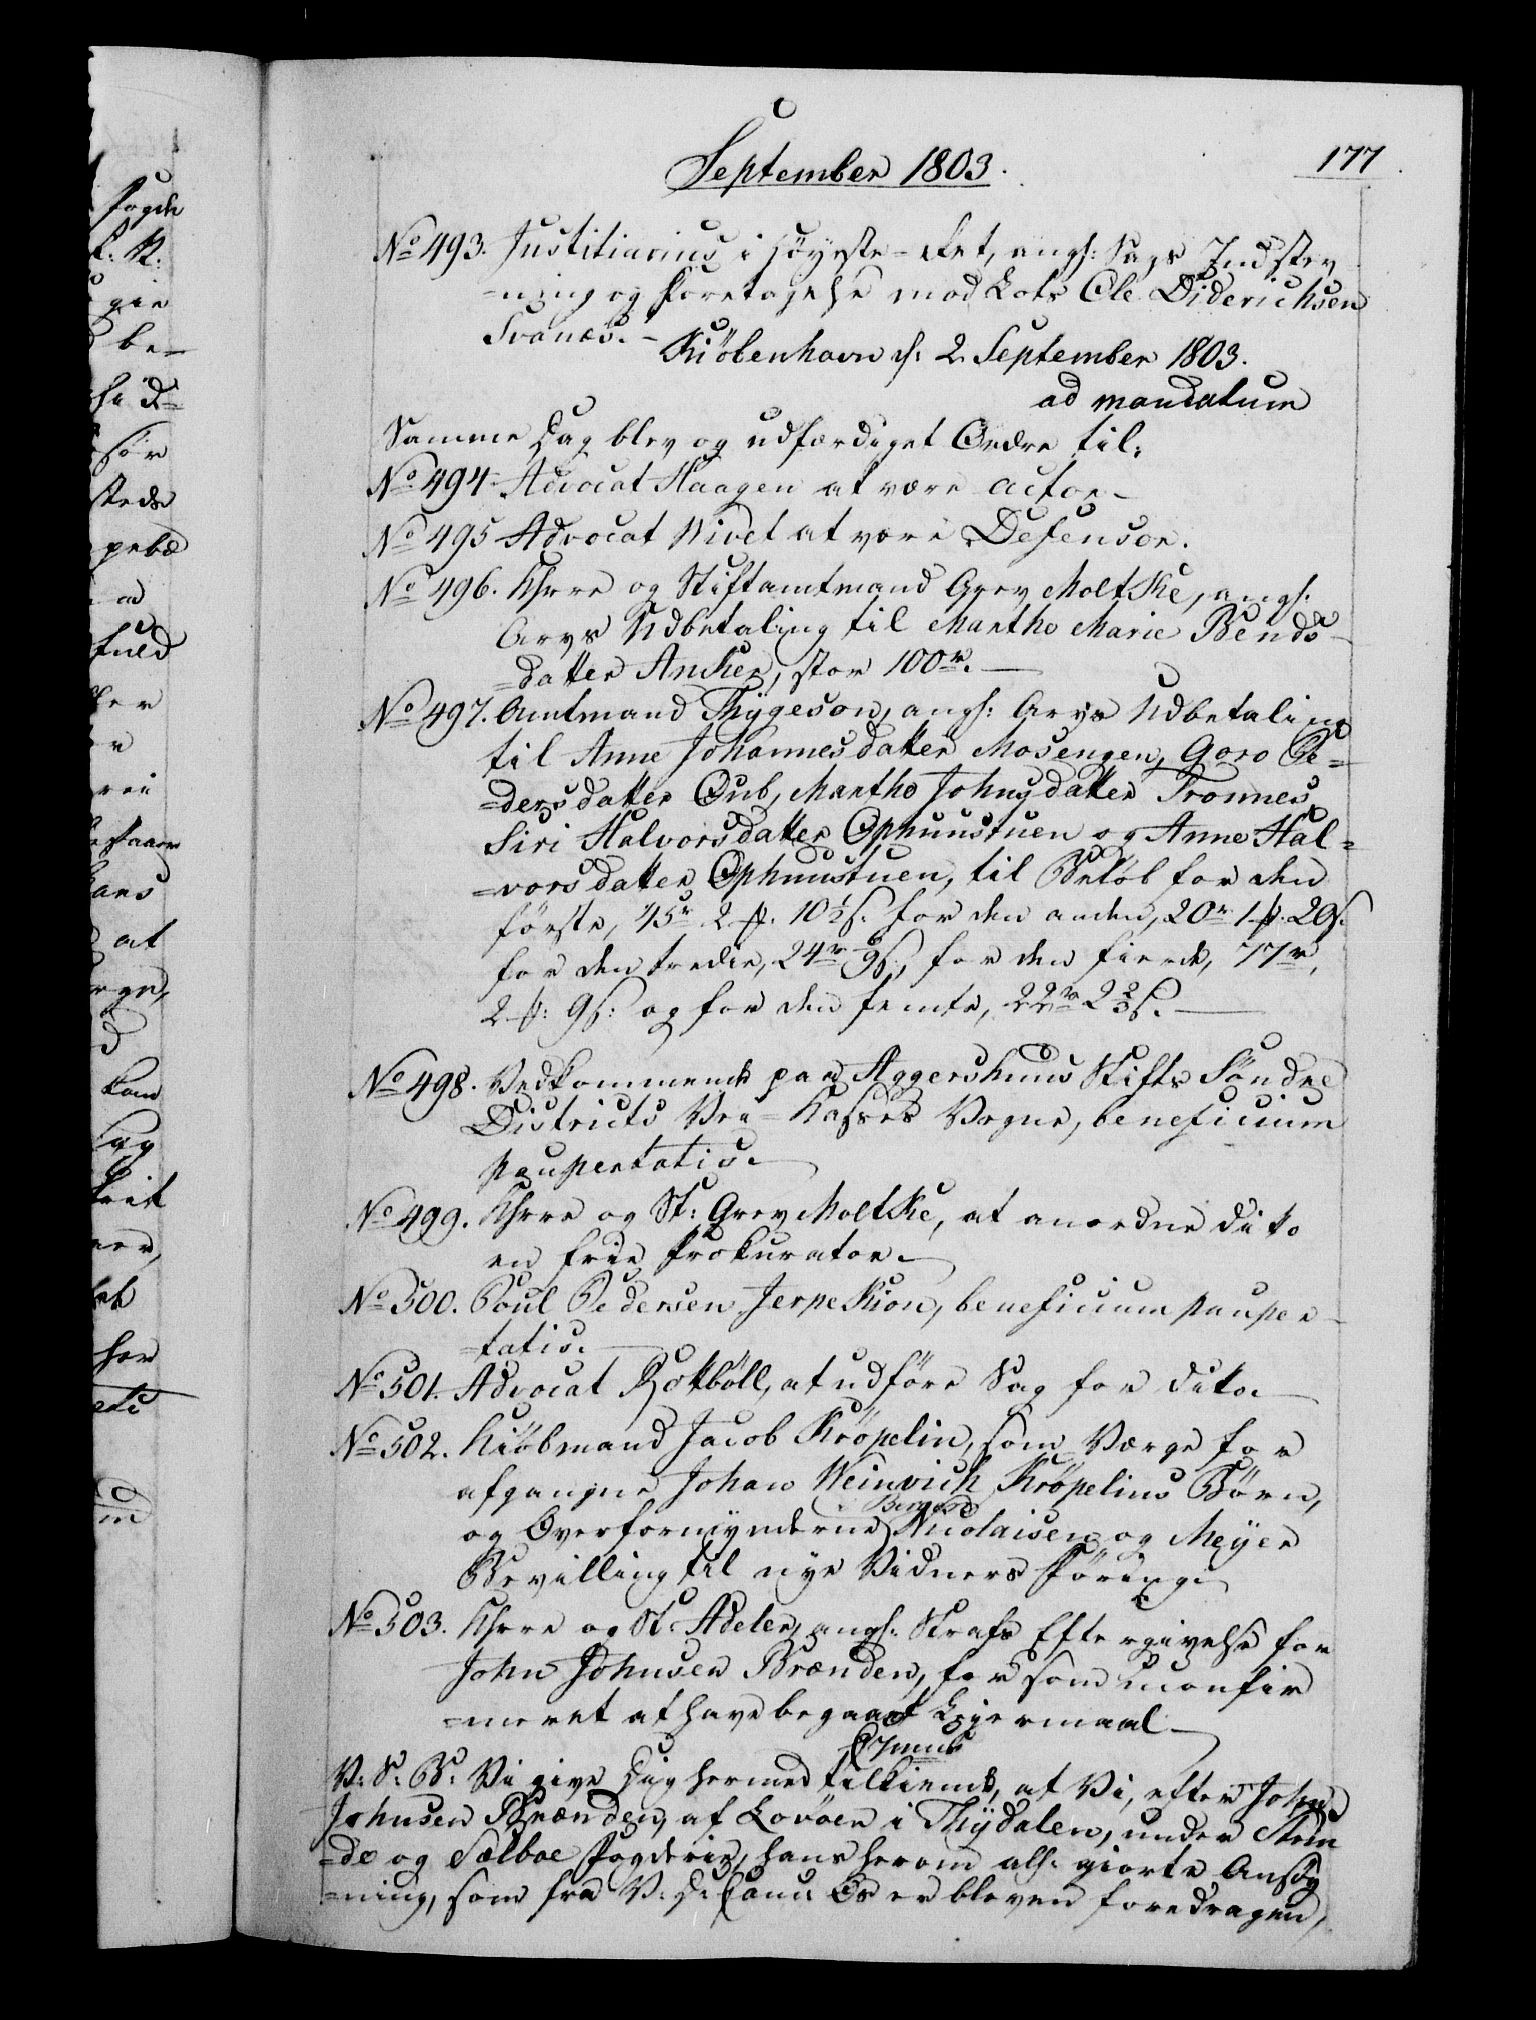 September 1803.
177
No 493. Justitiarius i Høyeste-Ret, angl: Sags Indstev
=ning og Foretagelse mod Lots Ole Diderichsen
Svanæs. -
Kiöbenhavn d: 2 September 1803.
ad mandatum
Samme Dag blev og udfærdiget Ordre til:
No 494. Advocat Haagen at være Actor -
No 495 Advocat Wivet at være Defensor.
No 496. Khrre og Stiftamtmand Grev Moltke, angl:
Arvs Udbetaling til Marthe Marie Bends-
=datter Ancher, stor 100r. —
No 497. Amtmand Thygeson, angl: Arvs Udbetaling
til Anne Johannesdatter Mosengen, Goro Pe=
=dersdatter Oub, Marthe Johnsdatter Tronnes,
Siri Halvorsdatter Ophuustuen og Anne Hal=
=vorsdatter Ophuustuen, til Beløb for den
første, 45r 2 ſ. 10½ſ. for den anden, 20r 1 ſ. 20ſ.
for den tredie, 24r 9ſ., for den fierde, 77r,
2 ſ: 9ſ: og for den femte, 22r 2⅔ſ. —
No 498. Vedkommende paa Aggershuus Stifts Søndre
Districts Vei-Kasses Vegne, beneficium
paupertatis. —
No 499. Khrre og St: Grev Moltke, at anordne dito
en frie Prokurator. —
No 500. Poul Pedersen Jerpekion, beneficium pauper-
=tatis. —
No 501. Advocat Rotbøll, at udføre Sag for dito. —
No 502. Kiøbmand Jacob Krøpelin, som Værge for
afgangne Johan Weinrich Krøpelins Børn,
i Bergen
og Overformynderne Nicolaisen og Meyer
Bevilling til nye Vidners Føring. —
No 503. Khrre og St: Adeler, angl: Strafs Eftergivelse for
John Johnsen Brænden, for som uconfir
=meret at have begaaet Leiermaal —
V: S: B: Vi give Dig hermed tilkiende, at Vi, efter John
Johnsen Brænden, af Løvøen i Thydalen, under Strin
=de og Sælboe Fogderie, hans herom all: giorte Ansøg
=ning, som fra V: D: Canc: Os er bleven foredragen,